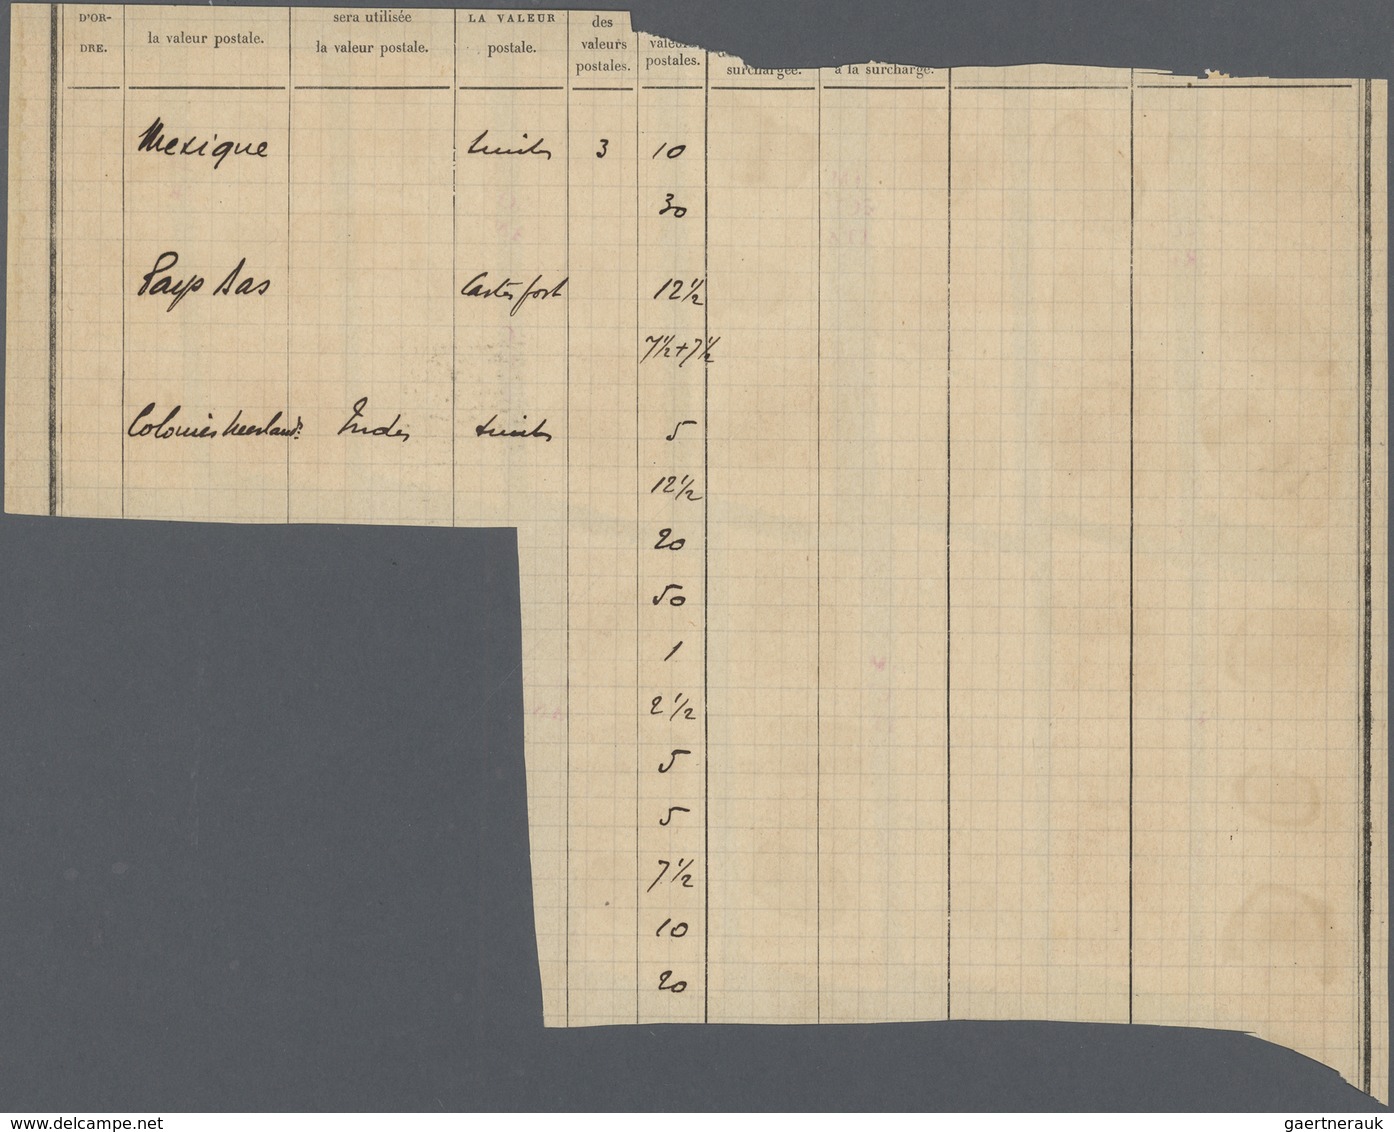 D'OR-
DRE.
la valeur postale.
sera utilisée
la valeur postale.
LA VALEUR
postale.
des
valeurs
postales.
valeurs
postales.
surchargée.
à la surcharge.
Mexique timbres 3 10
30
Pays Bas Cartes post 12½
7½+7½
Colonies Neerland. Indes timbres 5
12½
20
50
1
2½
5
5
7½
10
20
gaertnerauk